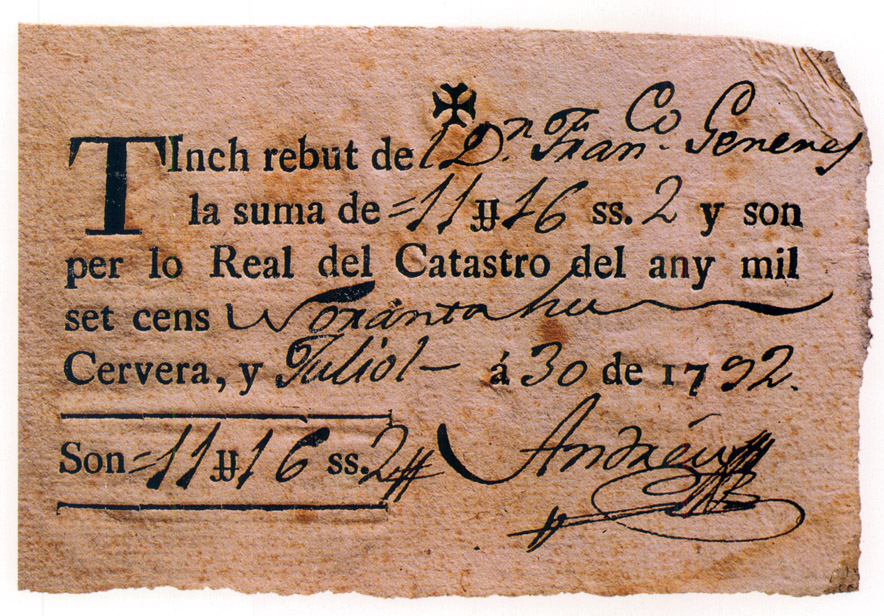 TInch rebut de D.n Fran.co Genenes
la suma de =11 ₶ 16 ss. 2 y son
per lo Real del Catastro del any mil
set cens Noranta hu
Cervera, y Juliol á 30 de 1792.
Son =11 ₶ 16 ss. 2
Andréu